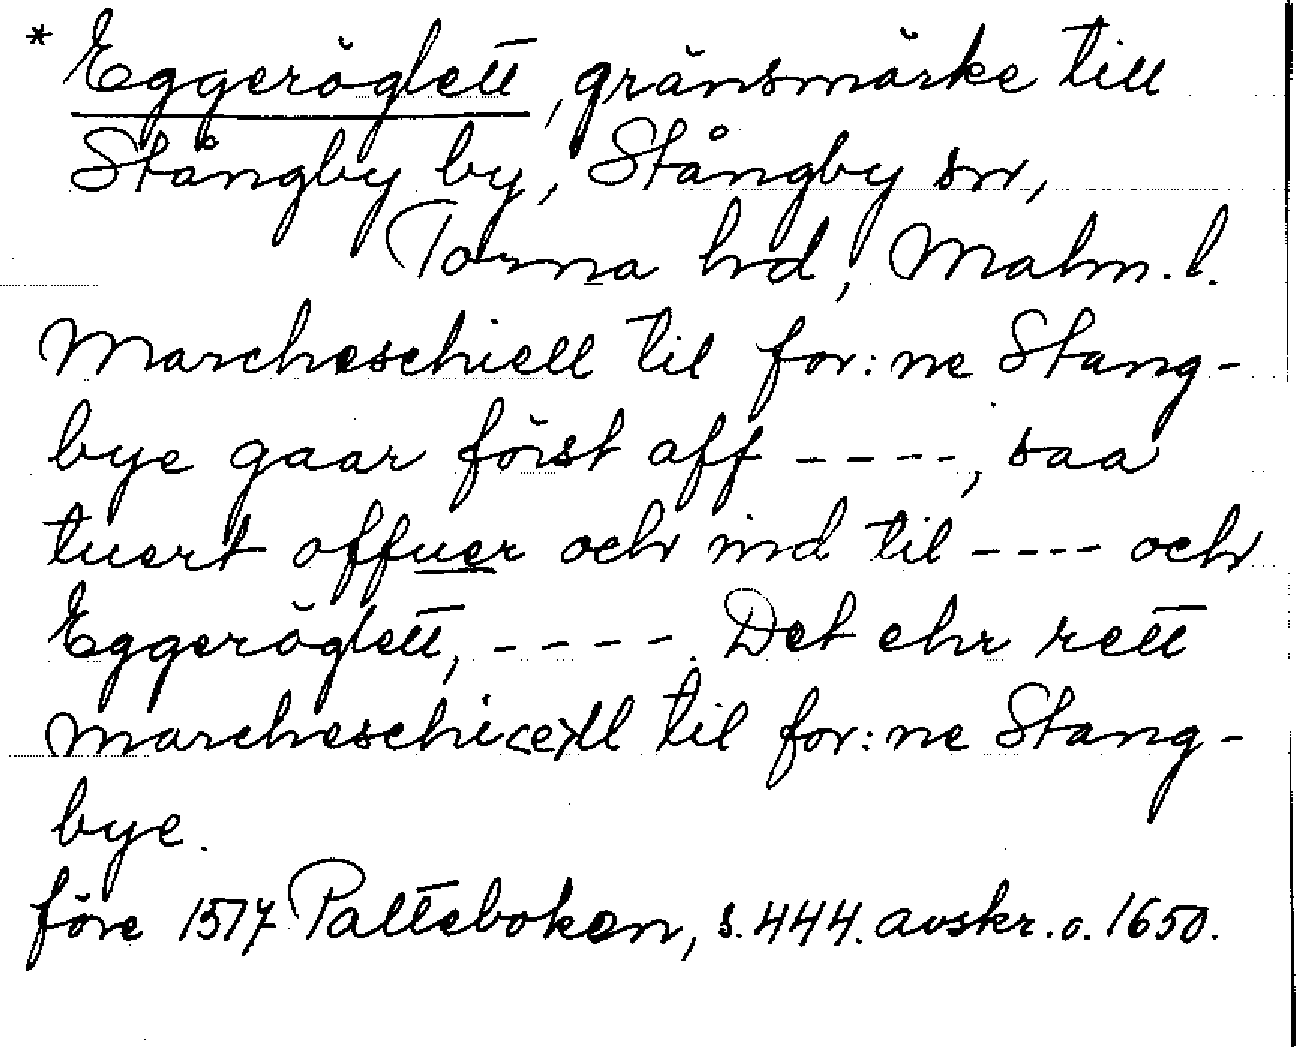 * Eggeröglett, gränsmärke till
Stångby by, Stångby sn,
Torna hd, Malm. l.
Marcheschiell til for:ne Stang-
bye gaar först aff ----, saa
tuert offuer och ind til ---- och
Eggeröglett, ----. Det ehr rett
marcheschi<e>ll til for:ne Stang-
bye.
före 1517 Palteboken, s. 444. avskr. o. 1650.